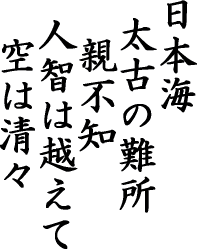 日本海
太古の難所
親不知
人智は越えて
空は清々